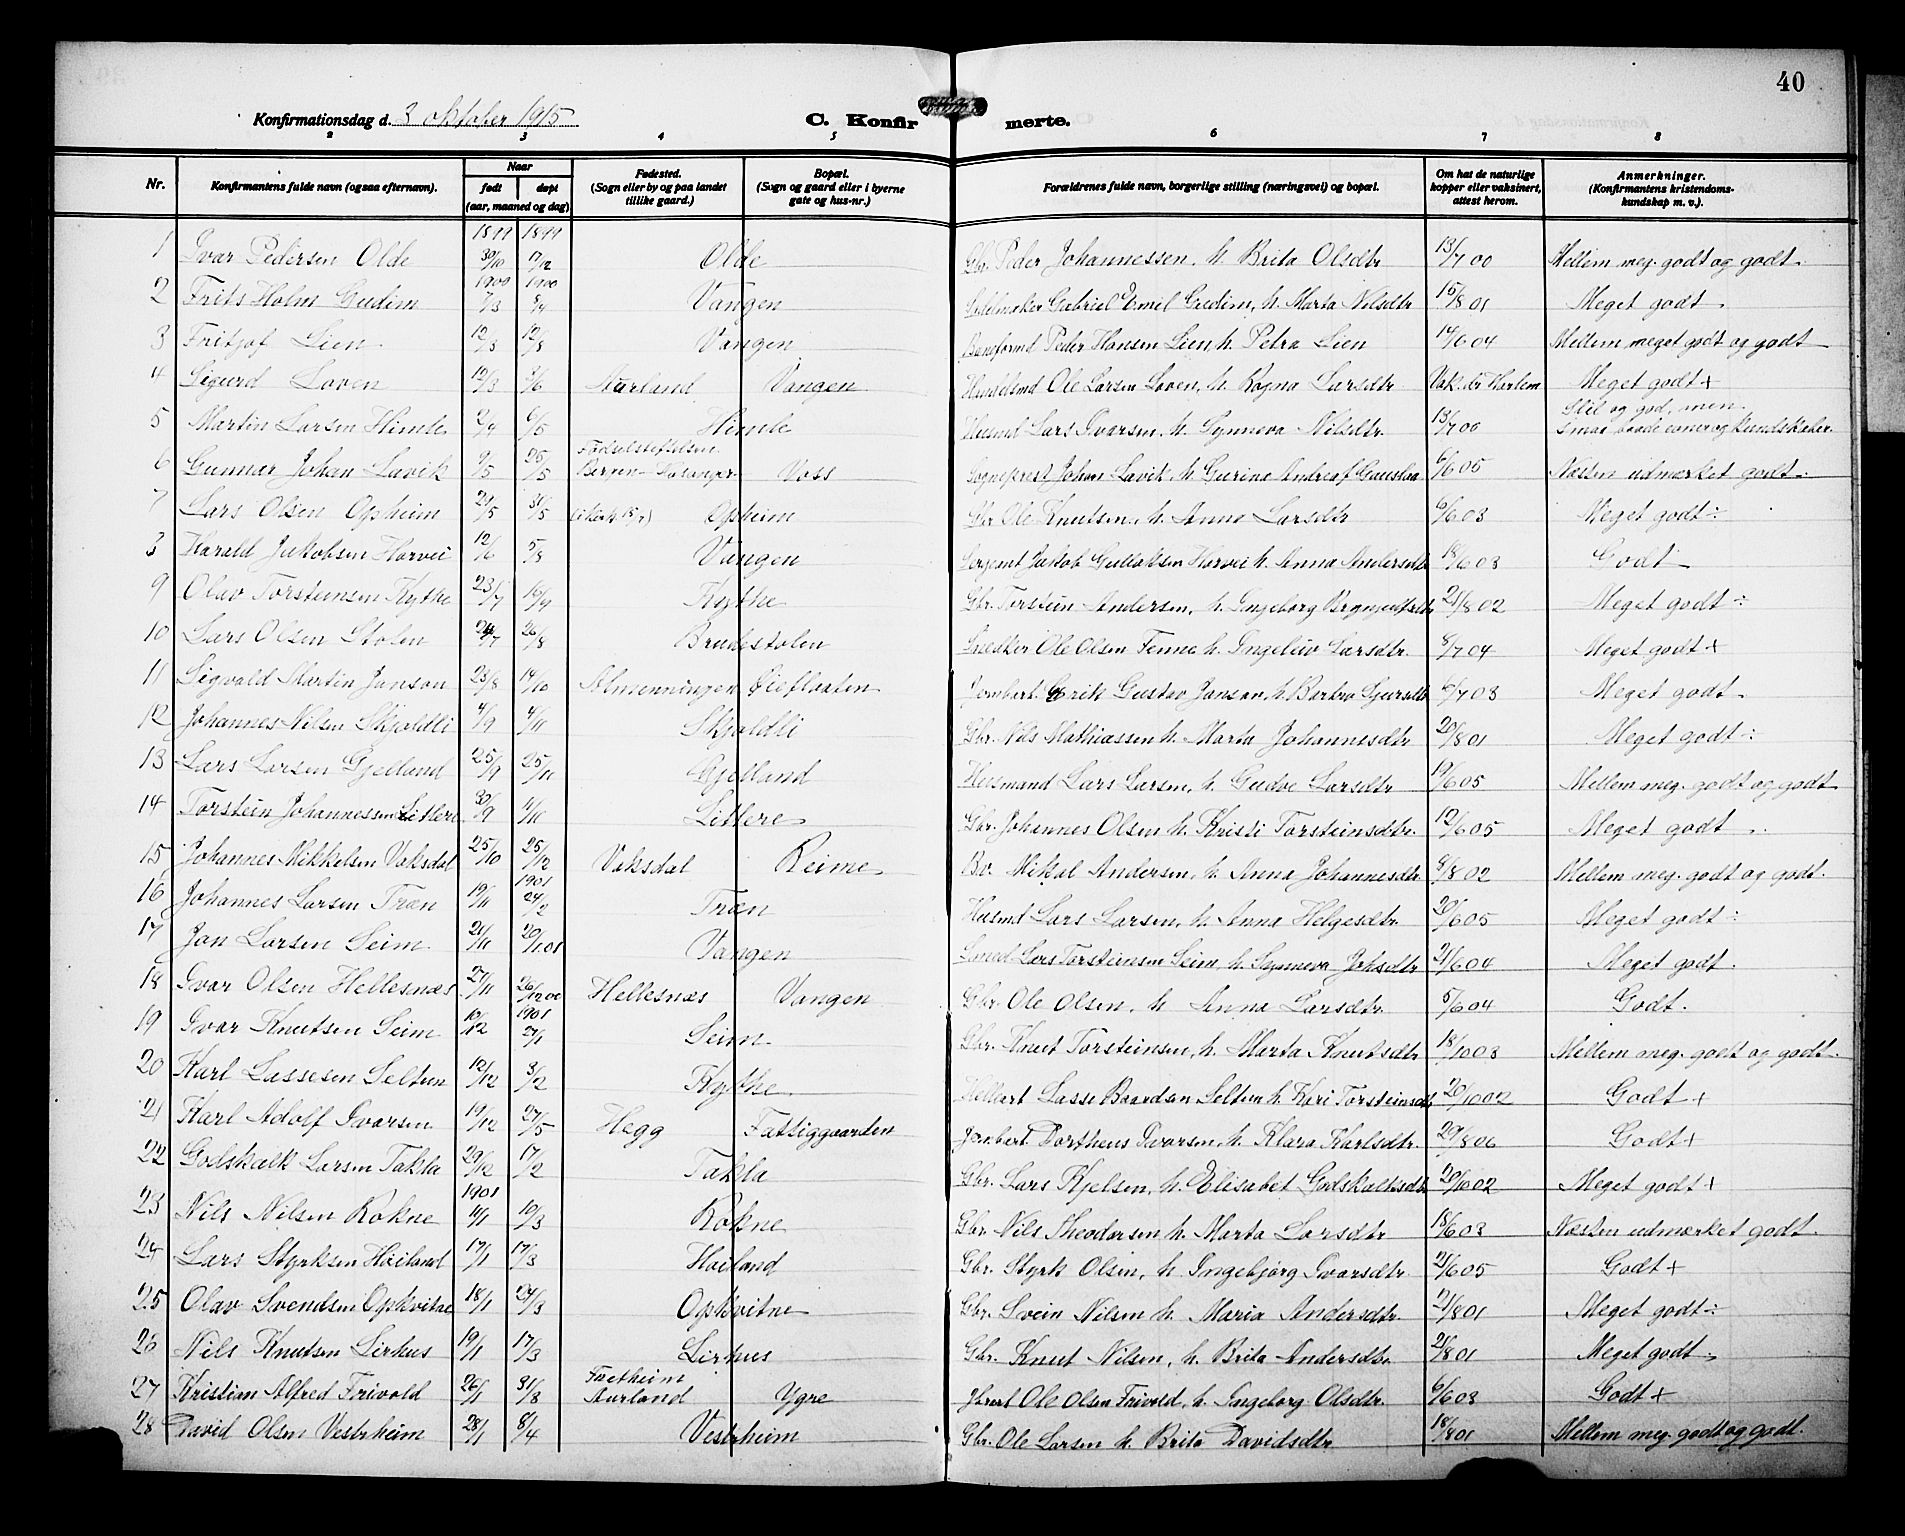 40
Konfirmationsdag d. 3 oktober 1915
C. Konfirmerte.
2 3 4 5 6 7 8
Nr. Konfirmantens fulde navn (ogsaa efternavn). Naar født døpt (aar, maaned og dag) Fødested. (Sogn eller by og paa landet tillike gaard.) Bopæl. (Sogn og gaard eller i byerne gate og hus-nr.) Forældrenes fulde navn, borgerlige stilling (næringsvei) og bopæl. Om hat de naturlige kopper eller vaksinert, attest herom. Anmerkninger. (Konfirmantens kristendoms-kundskap m. v.).
1899 1899
1 Ivar Pedersen Olde 30/10 17/12 Olde Gbr. Peder Johannessen, h. Brita Olsdtr 13/7 00 Mellem meg. godt og godt.
1900 1900
2 Frits Holm Gudim 7/3 8/4 Vangen Gabriel Emil Gudim, h. Marta Nilsdtr 15/8 01 Meget godt.
3 Fritjof Lien 12/3 12/8 Vangen Baneformd Peder Hansen Lien, h. Petra Lien 14/6 04 Mellem meget godt og godt
4 Sigurd Loven 19/3 3/6 Aurland Vangen Ole Larsen Loven, h. Ragna Larsdtr Vak. dr Harlem Meget godt +
5 Martin Larsen Himle 2/4 6/5 Himle Husmd Lars Ivarsen, h. Synneva Nilsdtr 13/7 00 Flit og god, men smaa baade evner og kundskaber.
6 Gunnar Johan Lavik 9/5 25/5 Fødselsstiftelsen Bergen - Vossanger Voss Sogneprest Johan Lavik, h. Gurine Andrea f. Gauslaa 6/6 05 Næsten udmerket godt.
7 Lars Olsen Opheim 24/5 31/5 Opheim Gbr Ole Knutsen, h. Anna Larsdtr 6/6 03 Meget godt ÷
8 Harald Jakobsen Horvei 12/6 5/8 Vangen Sergeant Jakob Gullaksen Horvei h. Anna Andersdtr 18/6 03 Godt
9 Olav Torsteinsen Kythe 23/7 16/9 Kythe Gbr. Torstein Andersen, h. Ingeborg 21/8 02 Meget godt ÷
10 Lars Olsen Stolen 24/7 26/8 Brudestolen Snekker Ole Olsen Tenne h. Ingeleiv Larsdtr. 8/7 04 Meget godt +
11 Sigvald Martin Janson 23/8 14/10 Almenningen Øieflaaten Jernbart. Erik Gustav Janson, h. Bertra Sjursdtr 6/7 03 Meget godt.
12 Johannes Nilsen Skjoldli 4/9 4/11 Skjoldli Gbr. Nils Mathiassen h. Marta Johannesdtr 20/8 01 Meget godt ÷
13 Lars Larsen Gjelland 25/9 25/11 Gjelland Husmand Lars Larsen, h. Gudve Larsdtr 19/6 05 Mellem meg. godt og godt
14 Torstein Johannessen Litlere 30/9 11/11 Litlere Gbr. Johannes Olsen h. Kristi Torsteinsdtr. 12/6 05 Meget godt.
15 Johannes Mikkelsen Vaksdal 25/10 25/12 Vaksdal Reime Bv. Mikal Andersen, h. Anna Johannesdtr 9/8 02 Mellem meg. godt og godt.
1901
16 Johannes Larsen Træn 19/11 24/2 Træn Husmd Lars Larsen, h. Anna Helgesdtr 20/6 05 Meget godt ÷
17 Jon Larsen Seim 21/11 20/1 01 Vangen Lars Torsteinsen Seim, h. Synneva Johsdtr 21/6 04 Meget godt.
18 Ivar Olsen Hellesnæs 27/11 26/12 00 Hellesnæs Vangen Gbr. Ole Olsen, h. Anna Larsdtr 5/6 04 Godt.
1901
19 Ivar Knutsen Seim 10/12 27/1 Seim Gbr. Knut Torsteinsen, h. Marta Knutsdtr 18/10 03 Mellem meg. godt og godt.
20 Karl Lassesen Seltun 12/12 3/2 Kythe Lasse Baardsen Seltun h. Kari Torsteinsdtr 20/10 02 Godt +
21 Karl Adolf Ivarsen 19/12 27/5 Hegg Fattiggaarden Jernbart. Dortheus Ivarsen, h. Klara Karlsdtr. 29/8 06 Godt +
22 Godskalk Larsen Takla 29/12 17/2 Takla Gbr. Lars Kjelsen, h. Elisabet Godskalksdtr 20/10 02 Meget godt +
1901
23 Nils Nilsen Rokne 14/1 10/3 Rokne Gbr. Nils Theodorsen h. Marta Larsdtr 18/6 03 Næsten udmerket godt.
24 Lars Styrksen Høiland 17/1 17/3 Høiland Gbr. Styrk Olsen, h. Ingebjørg Ivarsdtr. 21/6 05 Godt +
25 Olav Svendsen Opkvitne 18/1 24/3 Opkvitne Gbr. Svein Nilsen h. Maria Andersdtr. 21/8 01 Meget godt ÷
26 Nils Knutsen Lirhus 19/1 17/3 Lirhus Gbr. Knut Nilsen, h. Brita Andersdtr 21/8 01 Meget godt.
27 Kristian Alfred Frivold 26/1 31/3 Fretheim Aurland Ygre Ole Olsen Frivold, h. Ingeborg Olsdtr. 6/6 03 Godt +
28 David Olsen Vestrheim 28/1 8/4 Vestrheim Gbr. Ole Larsen h. Brita Davidsdtr 18/8 01 Mellem meg. godt og godt.